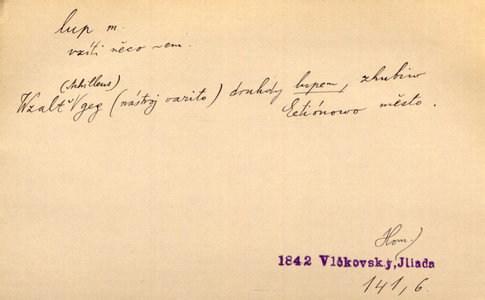 lup m.
vzíti něco ~em.
(Achilleus)
Wzalť geg (nástroj varito) druhdy lupem, zhubiw
Eetiónowo město.
Hom.
1842 Vlčkovský, Jliada
141, 6.